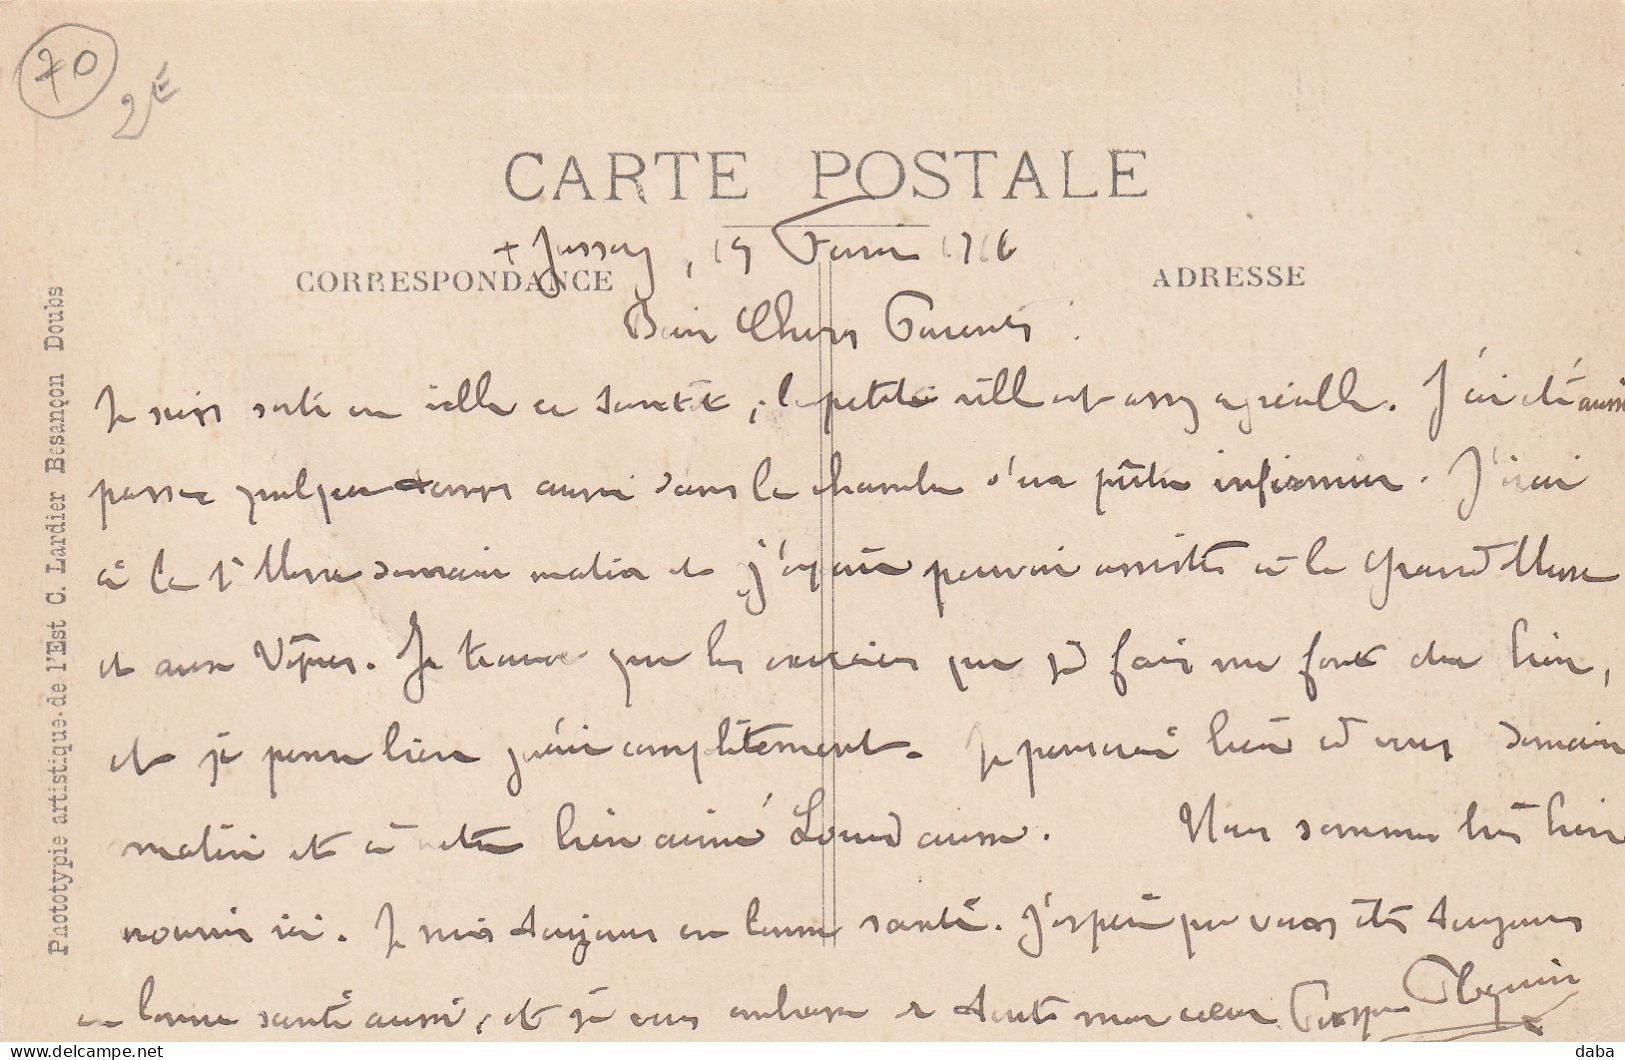 70
2E
CARTE POSTALE
+ Jussey, 19 Février 1916
CORRESPONDANCE
ADRESSE
Bien Chers Parents
Je suis sorti en ville ce ; la petite ville est assez agréable. J'ai été aussi
passer quelque temps aussi dans la chambre d'un prêtre infirmier. J'irai
à la 1e Messe demain matin et j'espère pouvoir assister à la Grand Messe
et aux Vêpres. Je trouve que les exercices que je fais me font du bien,
et je pense bien guérir complètement. Je penserai bien à vous demain
matin et à notre bien aimé aussi. Nous sommes très bien
nourris ici. Je suis toujours en bonne santé. J'espère que vous êtes toujours
en bonne santé aussi, et je vous embrasse de tout mon cœur.
Phototypie artistique de l'Est C. Lardier Besançon Doubs
© delcampe.net
daba